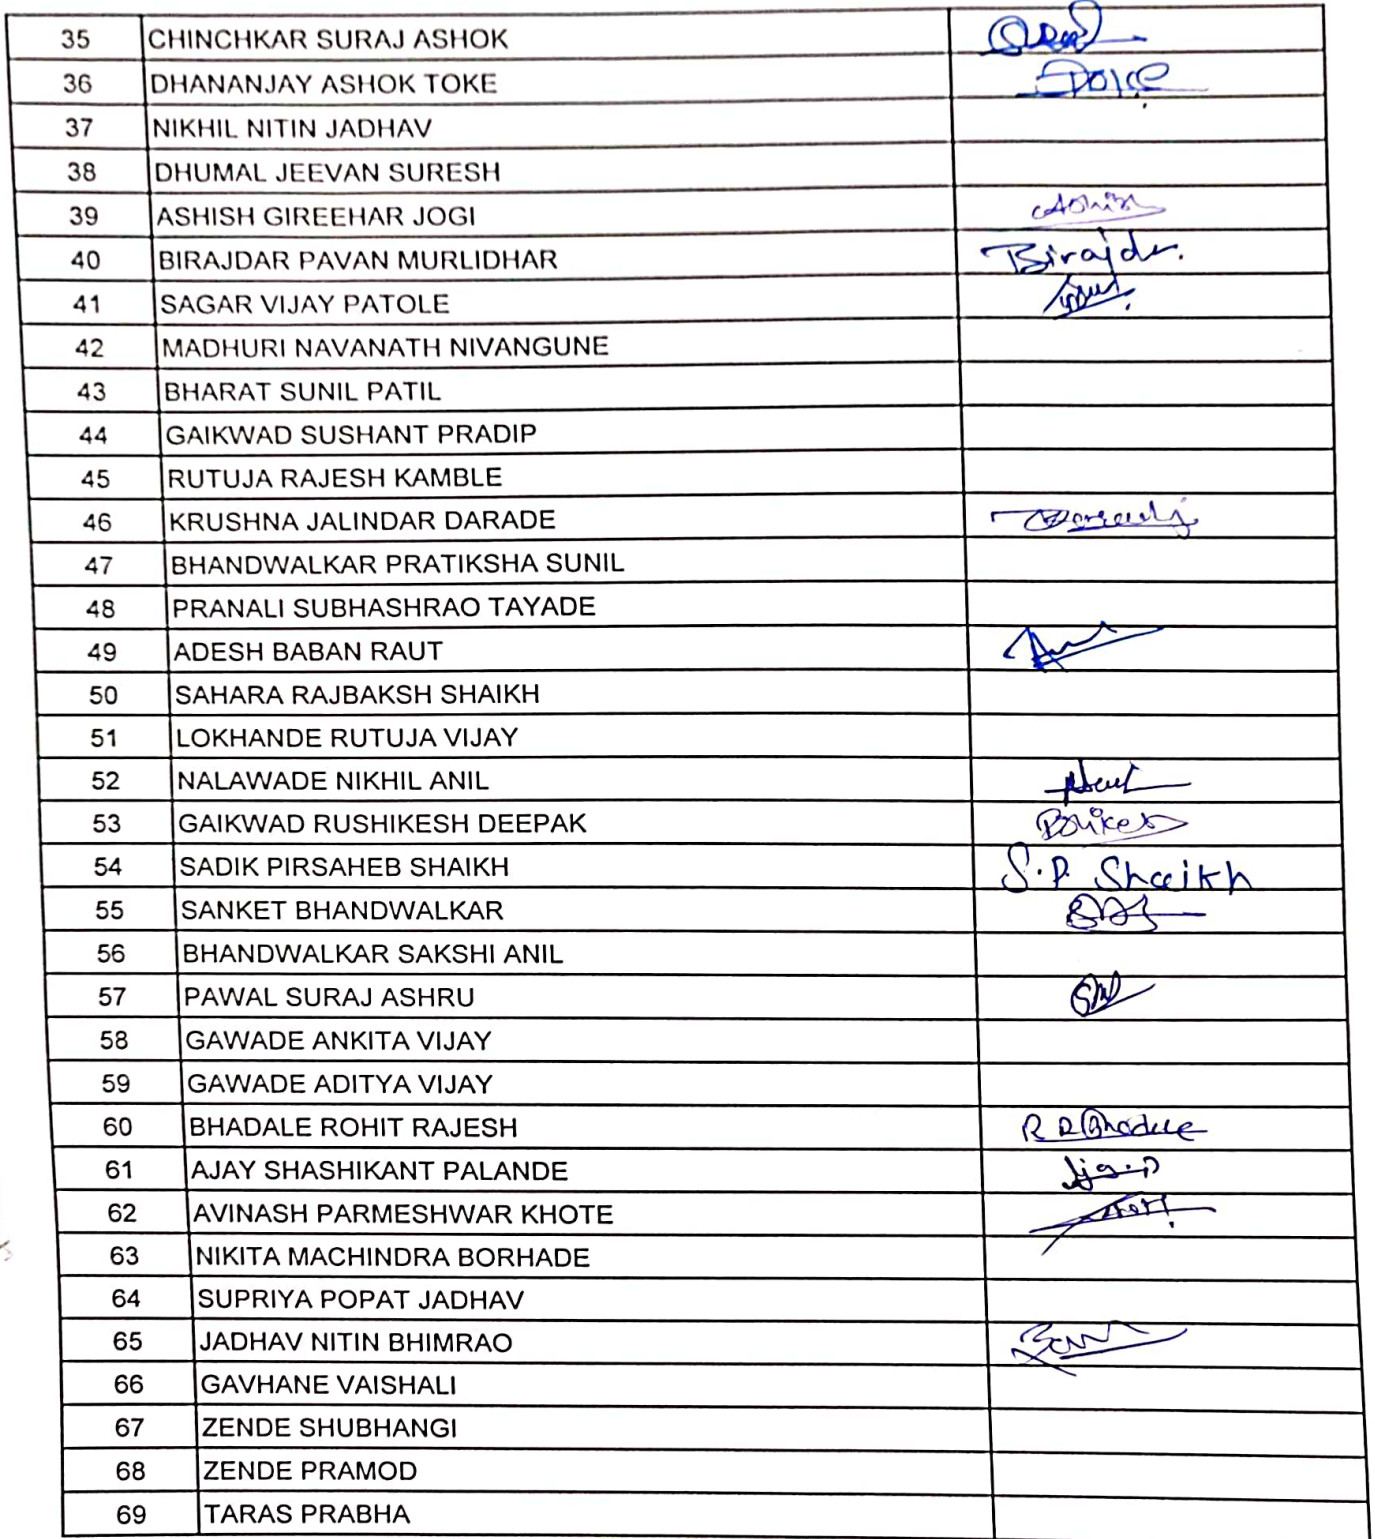 35 CHINCHKAR SURAJ ASHOK
36 DHANANJAY ASHOK TOKE
37 NIKHIL NITIN JADHAV
38 DHUMAL JEEVAN SURESH
39 ASHISH GIREEHAR JOGI Ashish
40 BIRAJDAR PAVAN MURLIDHAR Birajdar.
41 SAGAR VIJAY PATOLE
42 MADHURI NAVANATH NIVANGUNE
43 BHARAT SUNIL PATIL
44 GAIKWAD SUSHANT PRADIP
45 RUTUJA RAJESH KAMBLE
46 KRUSHNA JALINDAR DARADE
47 BHANDWALKAR PRATIKSHA SUNIL
48 PRANALI SUBHASHRAO TAYADE
49 ADESH BABAN RAUT
50 SAHARA RAJBAKSH SHAIKH
51 LOKHANDE RUTUJA VIJAY
52 NALAWADE NIKHIL ANIL
53 GAIKWAD RUSHIKESH DEEPAK
54 SADIK PIRSAHEB SHAIKH S.P. Shaikh
55 SANKET BHANDWALKAR
56 BHANDWALKAR SAKSHI ANIL
57 PAWAL SURAJ ASHRU
58 GAWADE ANKITA VIJAY
59 GAWADE ADITYA VIJAY
60 BHADALE ROHIT RAJESH
61 AJAY SHASHIKANT PALANDE
62 AVINASH PARMESHWAR KHOTE
63 NIKITA MACHINDRA BORHADE
64 SUPRIYA POPAT JADHAV
65 JADHAV NITIN BHIMRAO
66 GAVHANE VAISHALI
67 ZENDE SHUBHANGI
68 ZENDE PRAMOD
69 TARAS PRABHA